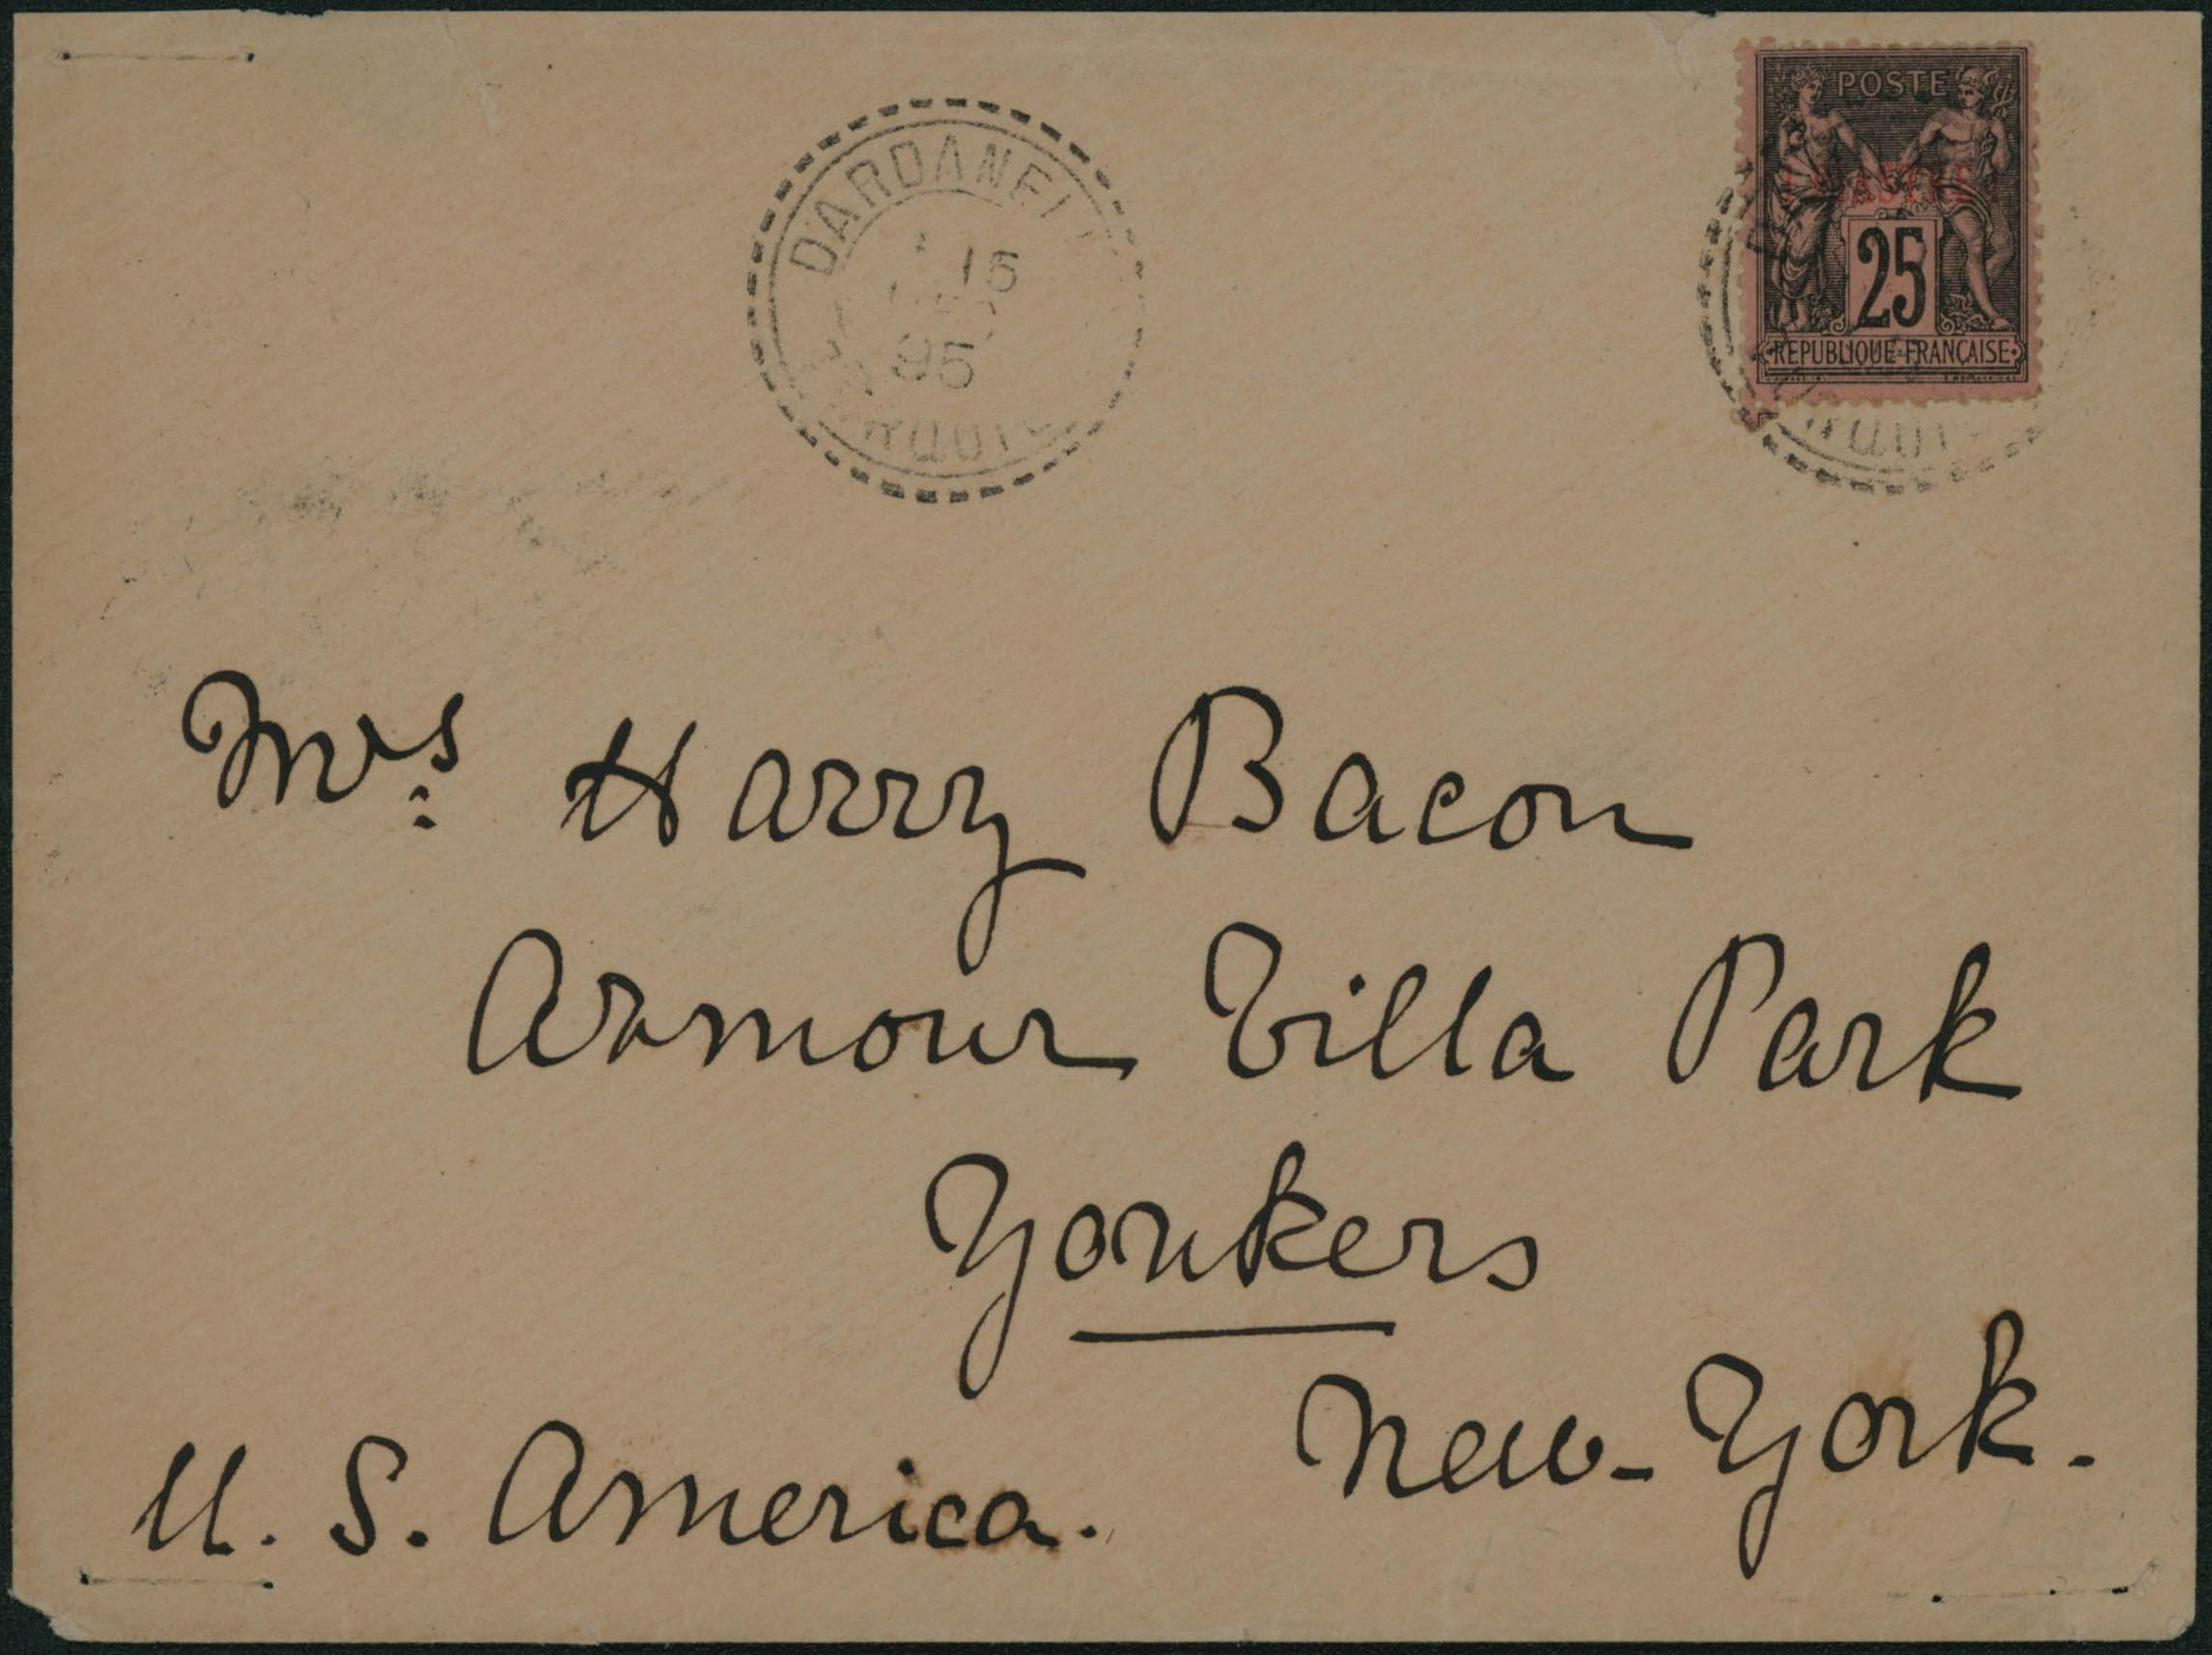 DARDANELL
15
95
POSTE
25
REPUBLIQUE FRANÇAISE
Mrs Harry Bacon
Armour Villa Park
Yonkers
New-York.
U. S. America.